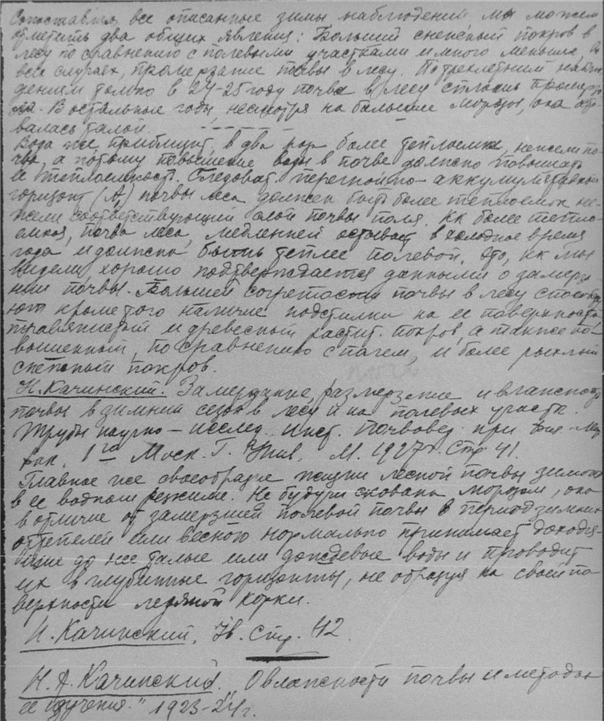 Сопоставляя все описанные зимы наблюдений мы можем
отметить два общих явления: Больший снежный покров в
лесу по сравнению с полевыми участками и много меньшее, во
всех случаях, промерзание почвы в лесу. По трехлетним наблю-
дениям только в 24-25 году почва в лесу сплошь промерз-
ла. В остальные годы, несмотря на большие морозы, она оста-
валась талой.
Вода же приблизит. в два раз более теплоемка, нежели поч-
ва, а потому повышение воды в почве должно повышать
ее теплоемкость. Следоват. перегнойно-аккумулятивный
горизонт (А₁) почвы леса должен быть более теплоемок не-
жели соответствующий слой почвы поля. Как более тепло-
емкая, почва леса, медленней остывает в холодное время
года и должна быть теплее полевой. Это, как мы
видели, хорошо подтверждается данными о замерза-
нии почвы. Большей согретости почвы в лесу способству-
ют кроме того наличие подстилки на ее поверхности
травянистый и древесный растит. покров, а также по-
вышенный, по сравнению с полем, и более рыхлый
снежный покров.
Н. Качинский. Замерзание, размерзание и влажность
почвы в зимний сезон в лесу и на полевых участк.
Труды научно-исслед. инст. Почвовед. при
1го Моск. Г. Унив. М. 1927г. Стр. 41.
Главное же своеобразие жизни лесной почвы зимой
в ее водном режиме. Не будучи скована морозом, она
в отличие от замерзшей полевой почвы в период зимних
оттепелей или весною нормально принимает доходя-
щие до нее талые или дождевые воды и проводит
их в глубинные горизонты, не образуя на своей по-
верхности ледяной корки.
Н. Качинский. стр. 42.
Н. А. Качинский. О влажности почвы и методах
ее изучения." 1923-24г.